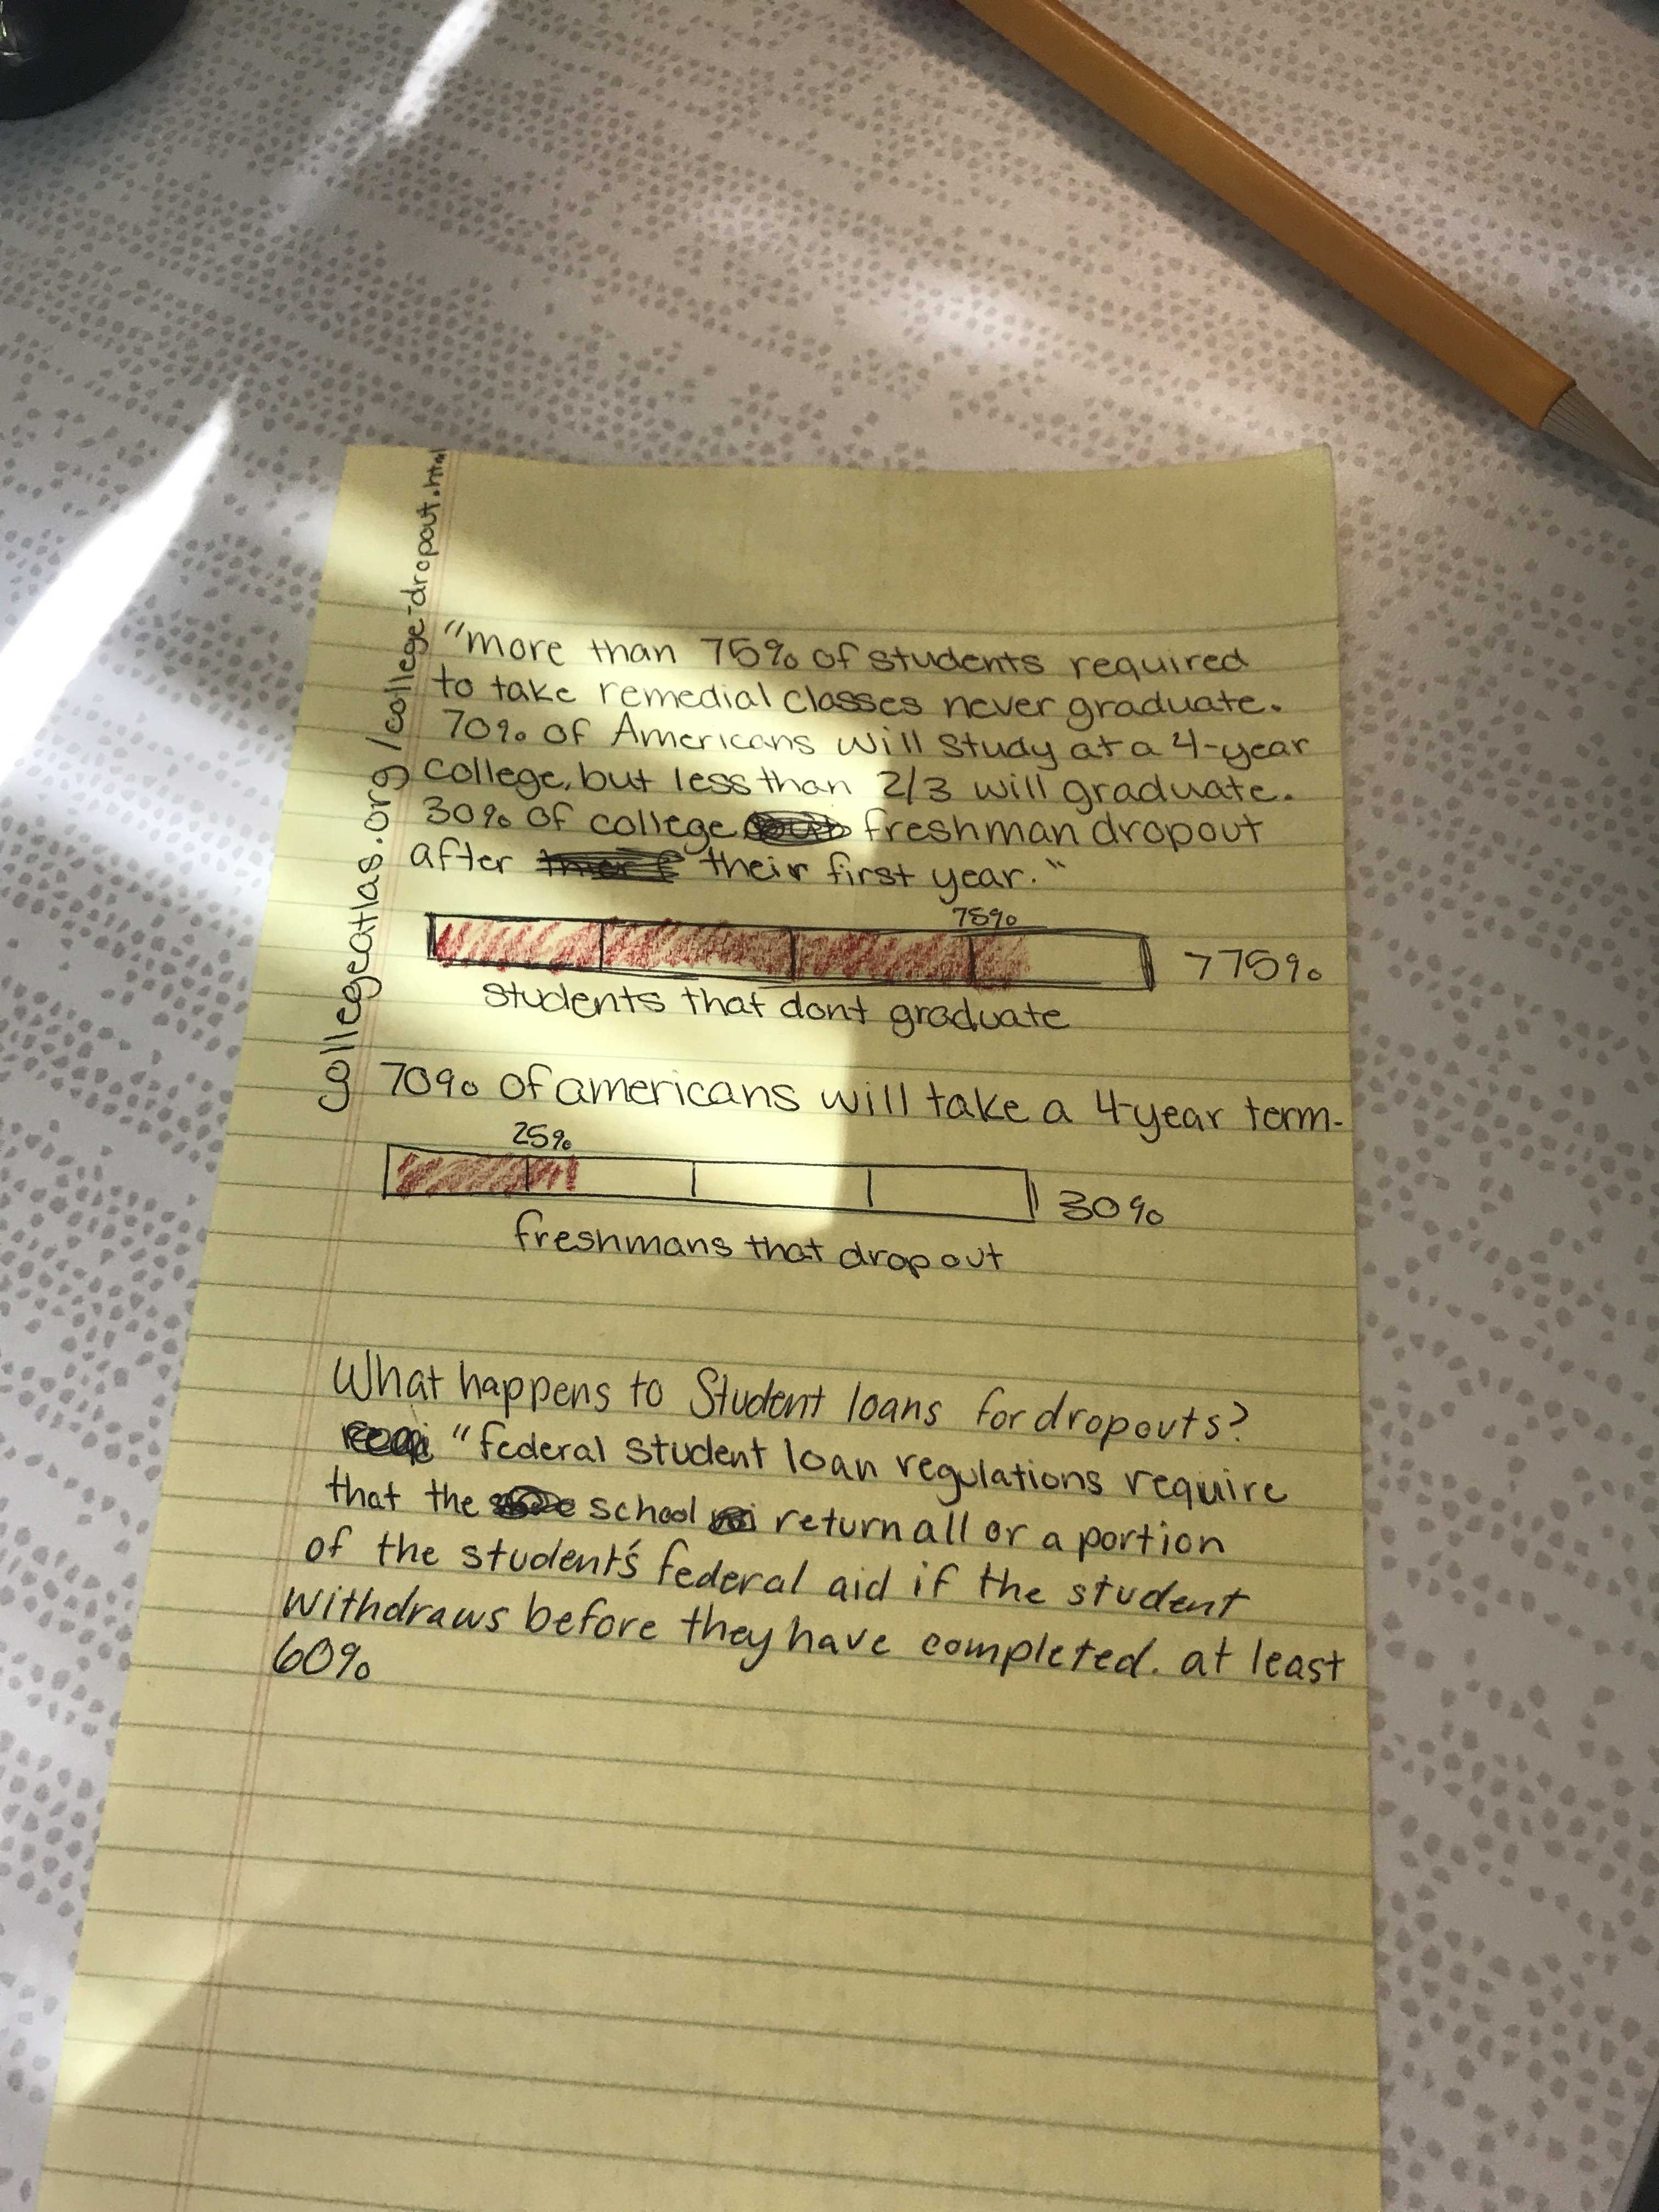 collegeatlas.org/college-dropout.html
"more than 75% of students required
to take remedial classes never graduate.
70% of Americans will study at a 4-year
college, but less than 2/3 will graduate.
30% of college freshman dropout
after their first year."
75%
>75%
students that dont graduate
70% of americans will take a 4-year term.
25%
30%
freshmans that drop out
What happens to Student loans for dropouts?
"federal student loan regulations require
that the school return all or a portion
of the student's federal aid if the student
withdraws before they have completed. at least
60%